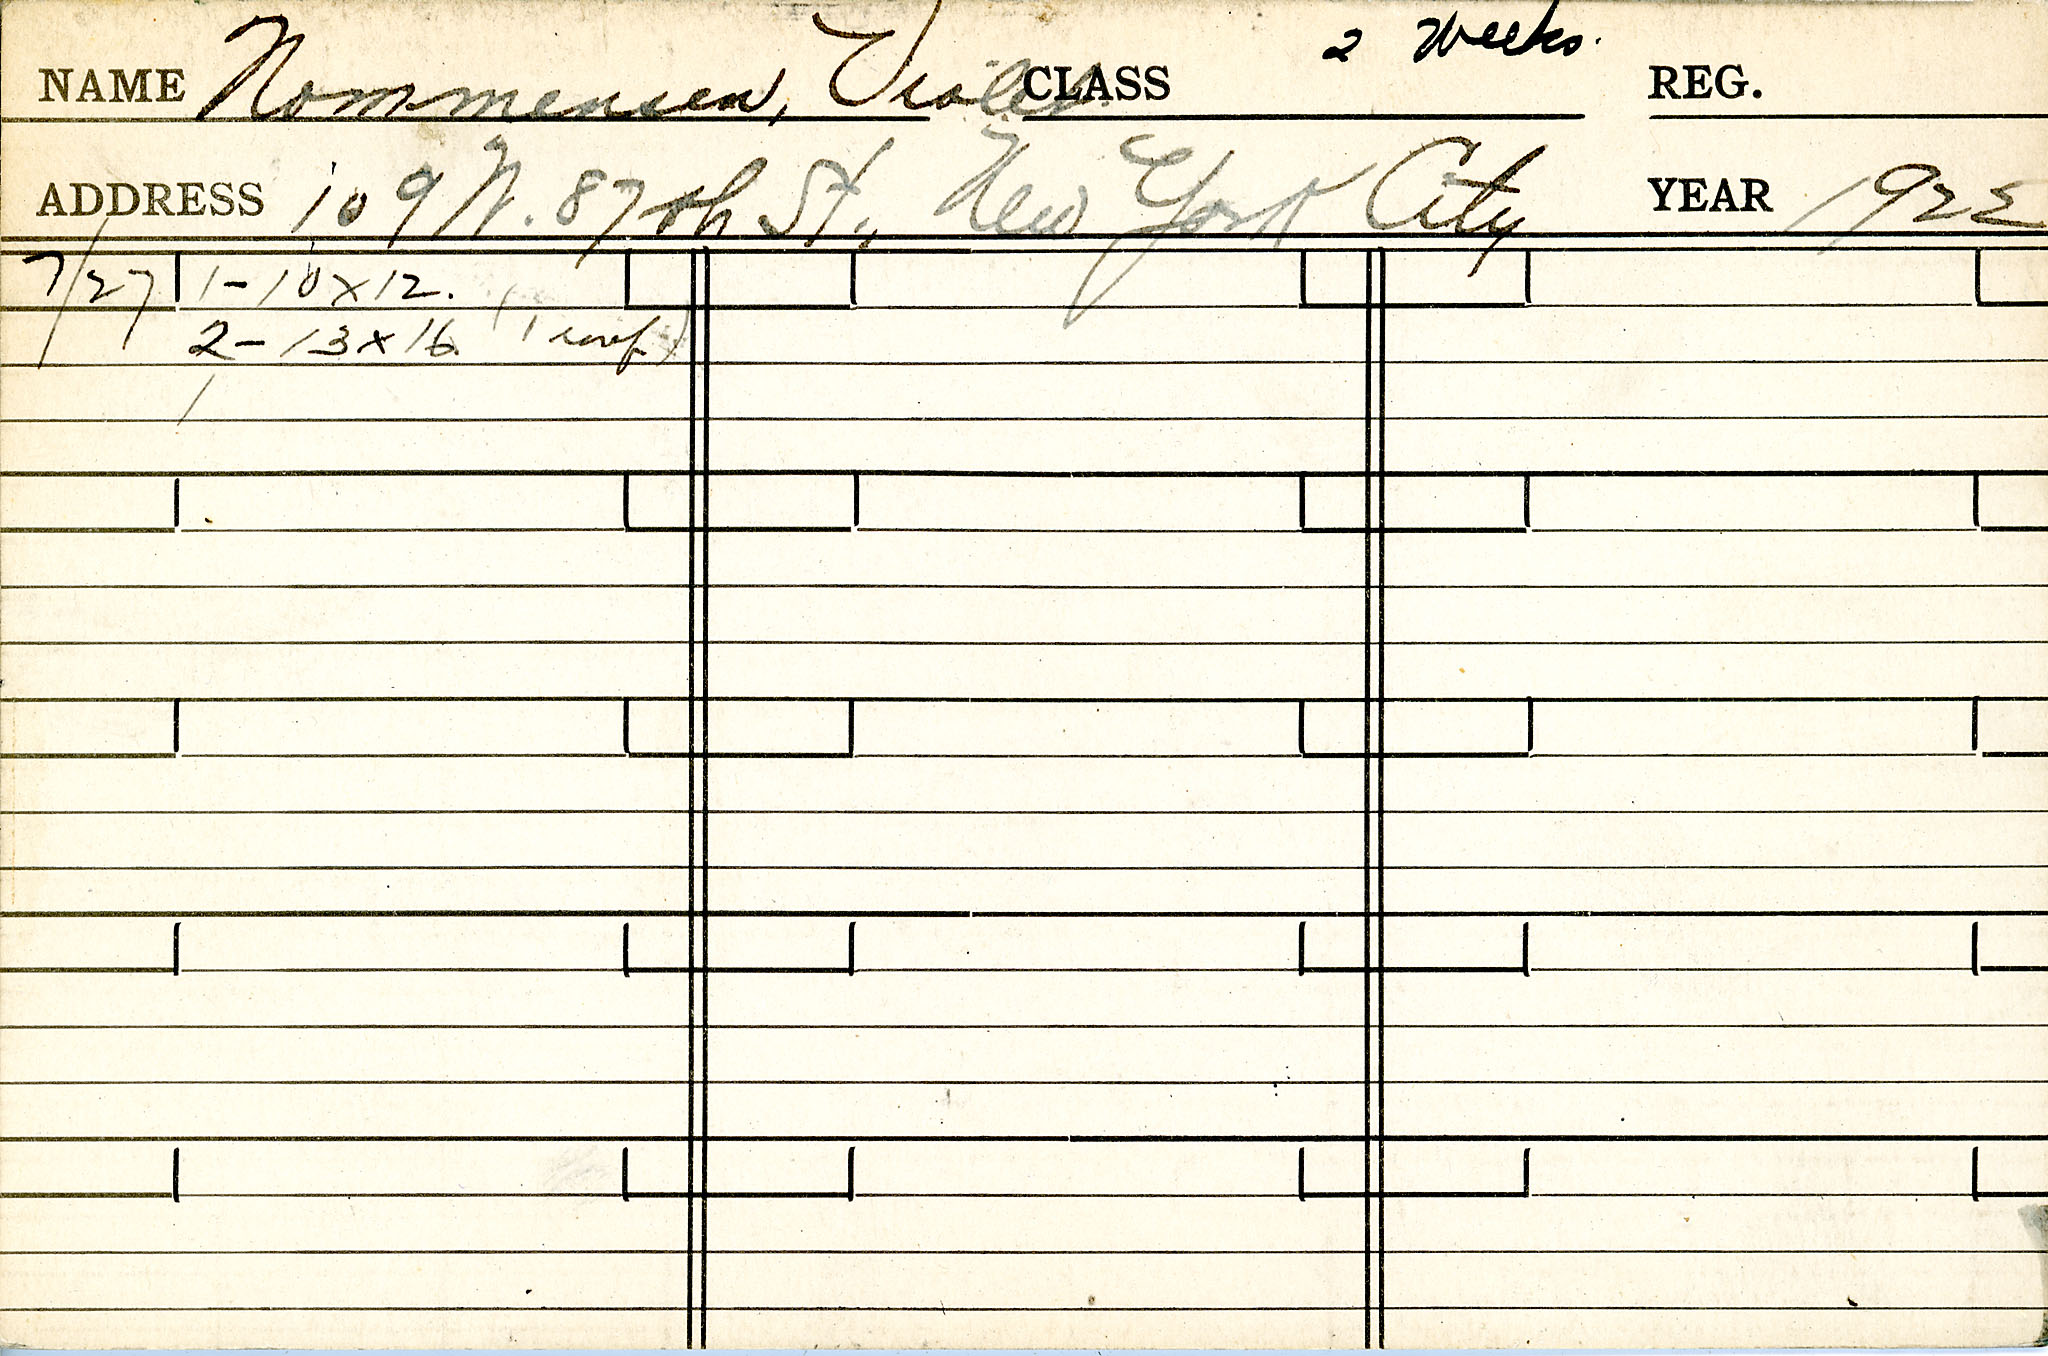 NAME Nommensen, Violet CLASS 2 Weeks. REG.
ADDRESS 109 W. 87th St., New York City YEAR 1922
7/27 1-10x12.
2-13x16. (1